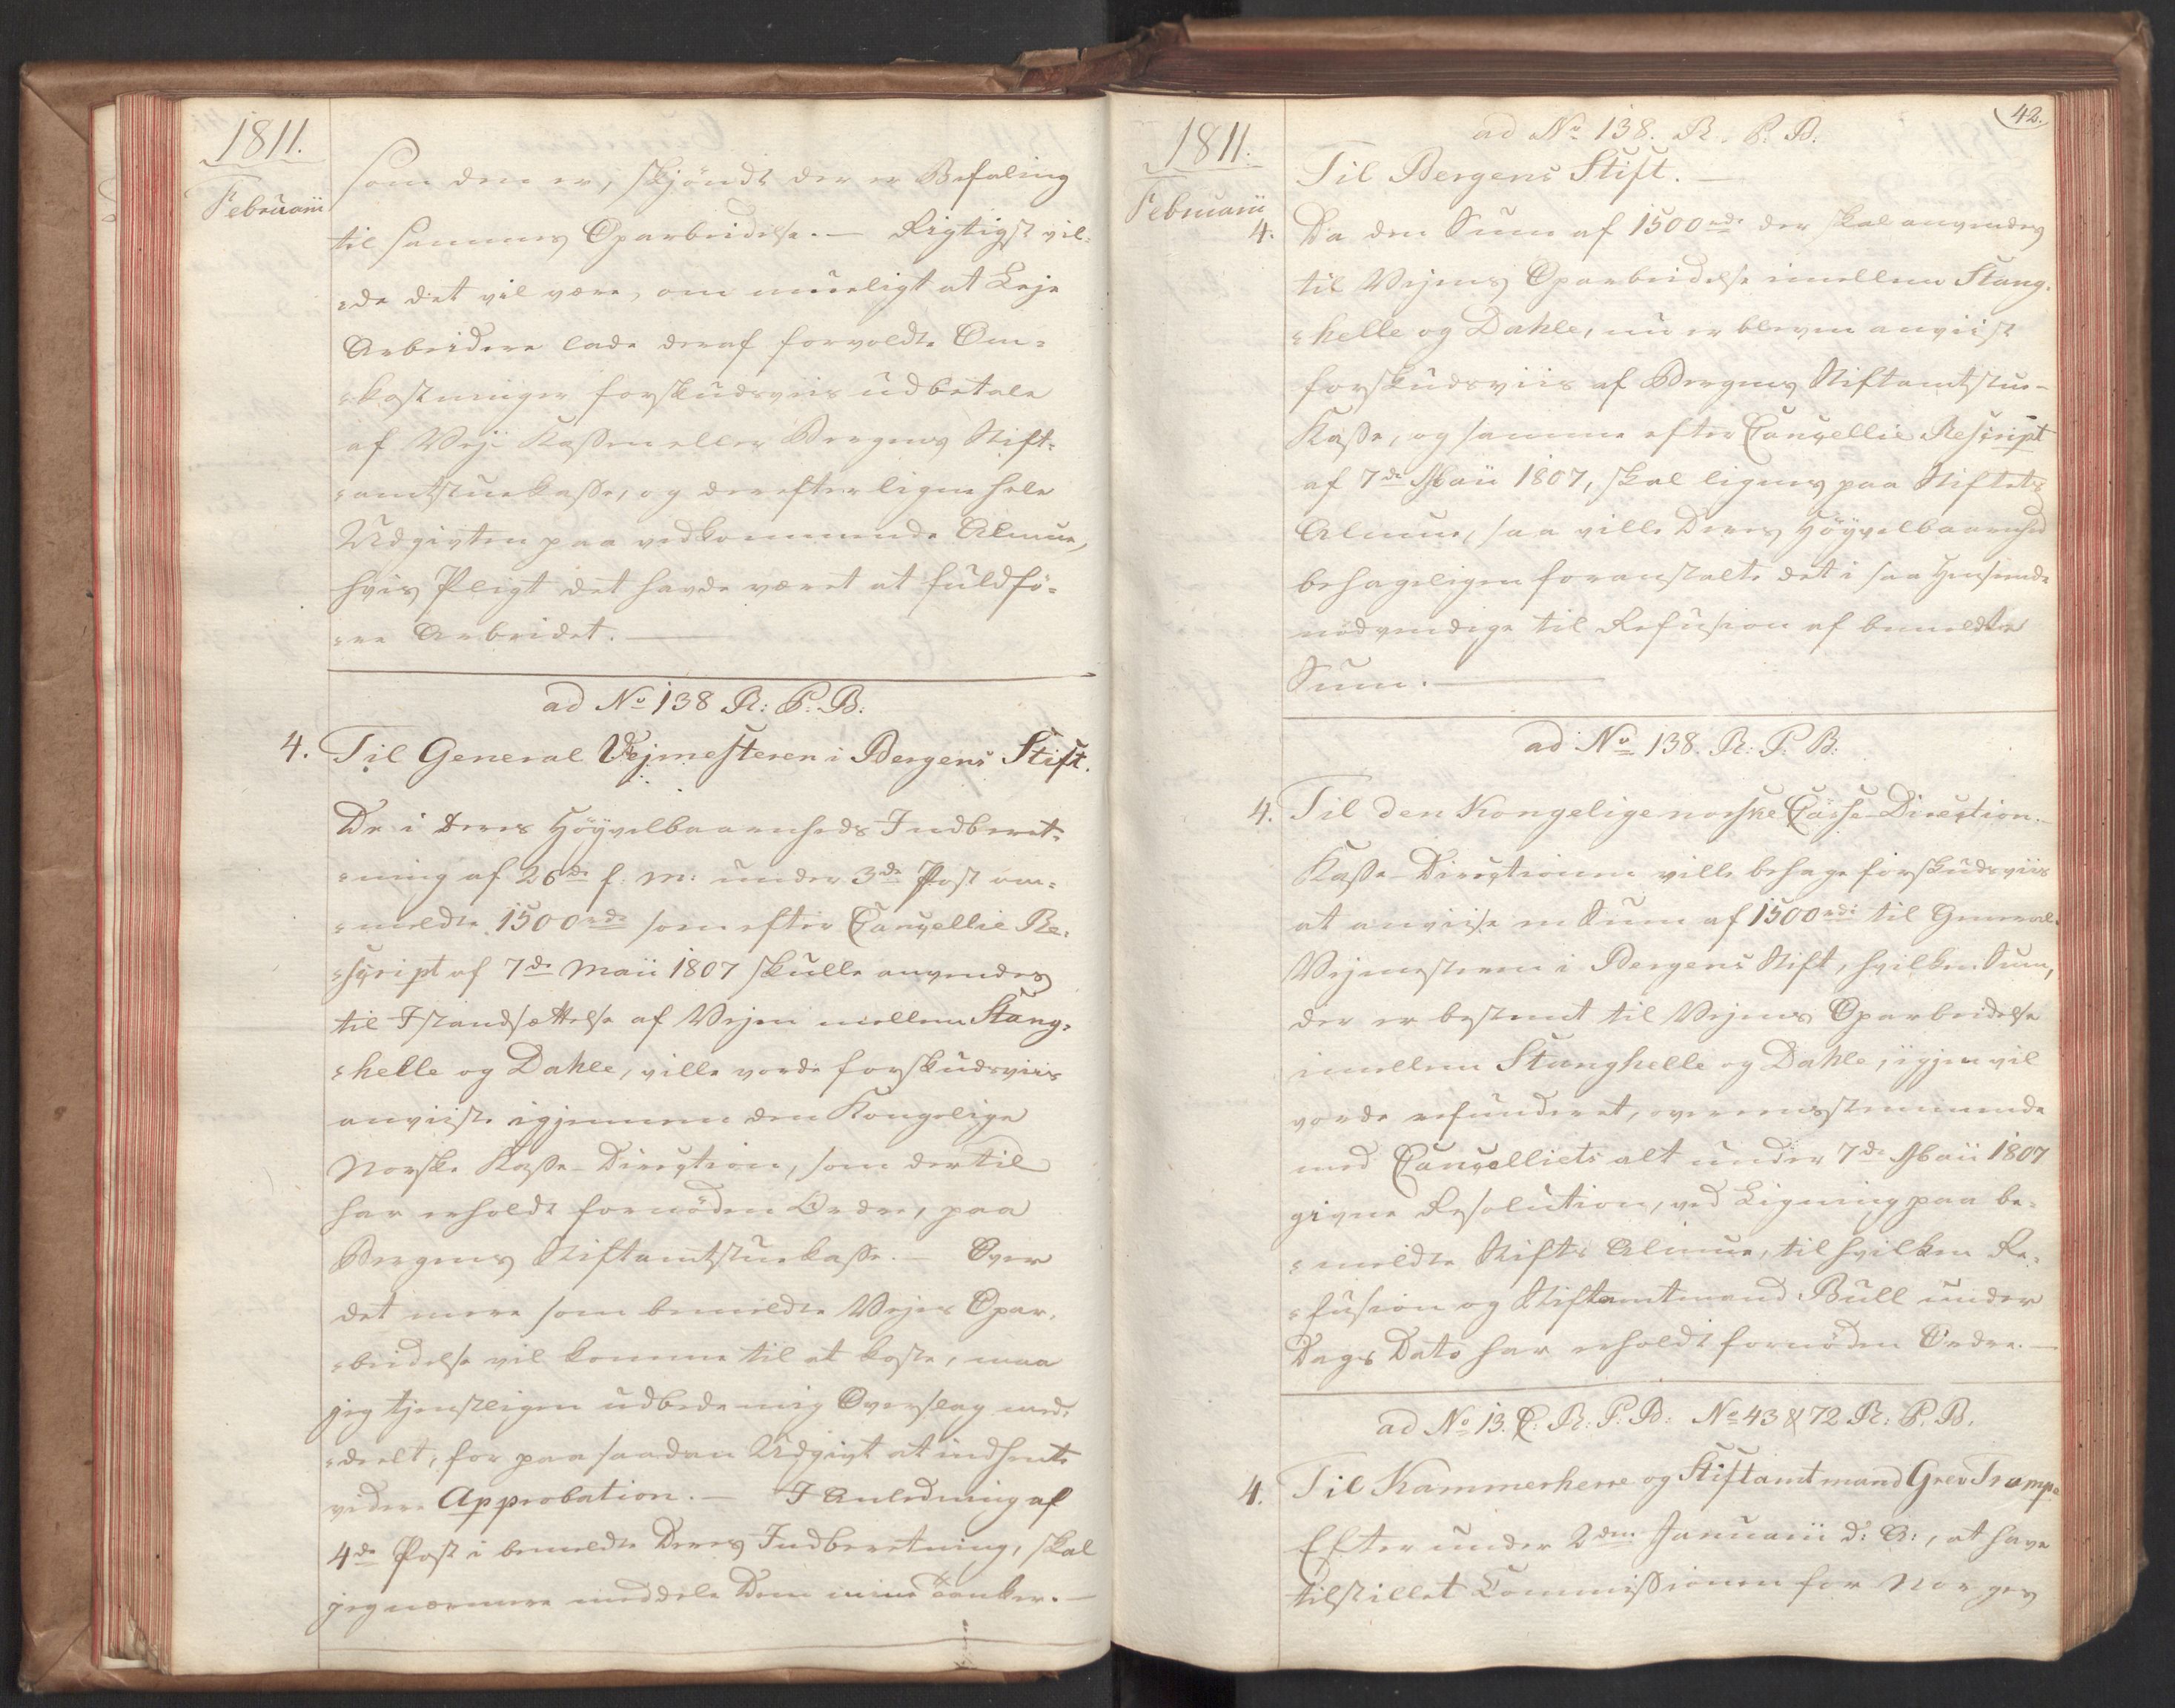 1811.
Februarii
som den er, skjöndt der er Befaling
til sammes Oparbeidelse. — Rigtigst vil-
=de det vel være, om mueligt at Leje
Arbeidere lade deraf forvoldte Om=
=kostninger forskudsviis udbetale
af Vej-Kassen eller Bergens Stift=
=amtstuekasse, og derefter ligne hele
Udgivten paa vedkommende Almue,
hvis Pligt det havde været at fuldfö=
=re Arbeidet. —
ad No 138 R: P. B:
4. Til General Vejmesteren i Bergens Stift.
De i Deres Höyvelbaarenheds Indberet=
=ning af 26de f: M: under 3de Post om=
=meldte 1500 rd. som efter Cancellie Re=
=script af 7de Maii 1807 skulle anvendes
til Istandsættelse af Vejen mellem Stang=
=helle og Dahle, ville vorde forskudsviis
anviiste igjennem den Kongelige
Norske Kasse-Direction, som dertil
har erholdt fornöden Ordre, paa
Bergens Stiftamtstuekasse. — Over
det mere som bemeldte Vejes Opar=
=beidelse vil komme til at koste, maa
jeg tjenstligen udbede mig Overslag med=
=deelt, for paa saadan Udgivt at indhente
videre Approbation. — I Anledning af
4de Post i bemeldte Deres Indberetning, skal
jeg nærmere meddele Dem mine Tanker. —
42.
1811.
Februarii
ad No 138. R. P. B.
Til Bergens Stift. —
4. Da den Sum af 1500 rd. der skal anvendes
til Vejens Oparbeidelse imellem Stang=
=helle og Dahle, nu er bleven anviist
forskudsviis af Bergens Stiftamtstue-
Kasse, og samme efter Cancellie Rescript
af 7de Maii 1807, skal lignes paa Stiftets
Almue, saa ville Deres Höyvelbaarenhed
behageligen foranstalte det i saa Henseende
nödvendige til Refusion af bemeldte
Sum. —
ad No 138. R: P. B:
4. Til den Kongelige norske Casse-Direction.—
Kasse-Directionen ville behage forskudsviis
at anviise en Sum af 1500 rd: til General-
Vejmesteren i Bergens Stift, hvilken Sum,
der er bestemt til Vejens Oparbeidelse
imellem Stanghelle og Dahle, igjen vil
vorde refunderet, overensstemmende
med Cancelliets alt under 7de Maii 1807
givne Resolution, ved Ligning paa be=
=meldte Stifts Almue, til hvilken Re=
=fusion og Stiftamtmand Bull under
Dags Dato har erholdt fornöden Ordre. —
ad No 13. C: R: P: B: No 43 & 72 R: P. B.
4. Til Kammerherre og Stiftamtmand Grev Trampe
Efter under 2den Januarii d: A:, at have
tilstillet Commissionen for Norges